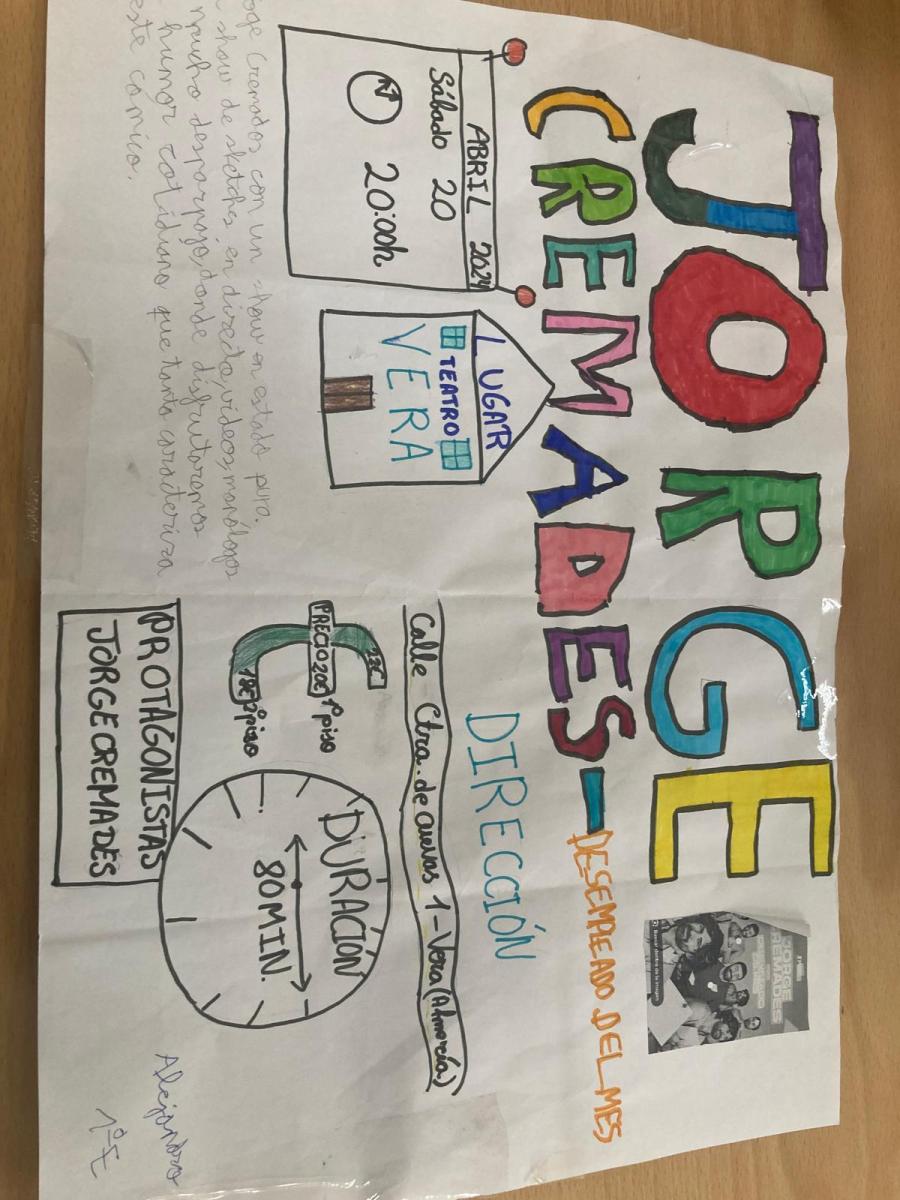 JORGE
CREMADES-DESEMPEADO DEL MES
JORGE
CREMADES
ABRIL 2024
Sábado 20
20:00h
LUGAR
TEATRO
VERA
DIRECCIÓN
Calle Ctra. de cuevas 1-Vera (Almería)
PRECIO 20€ 1º piso
18€ 2º piso
DURACIÓN
80 MIN.
PROTAGONISTAS
JORGE CREMADES
Cremados con un show en estado puro.
show de sketches en directo, videos, monólogos
mucho desparpajo, donde disfrutaremos
humor cotidiano que tanto caracteriza
este cómico.
Alejandro
1º E